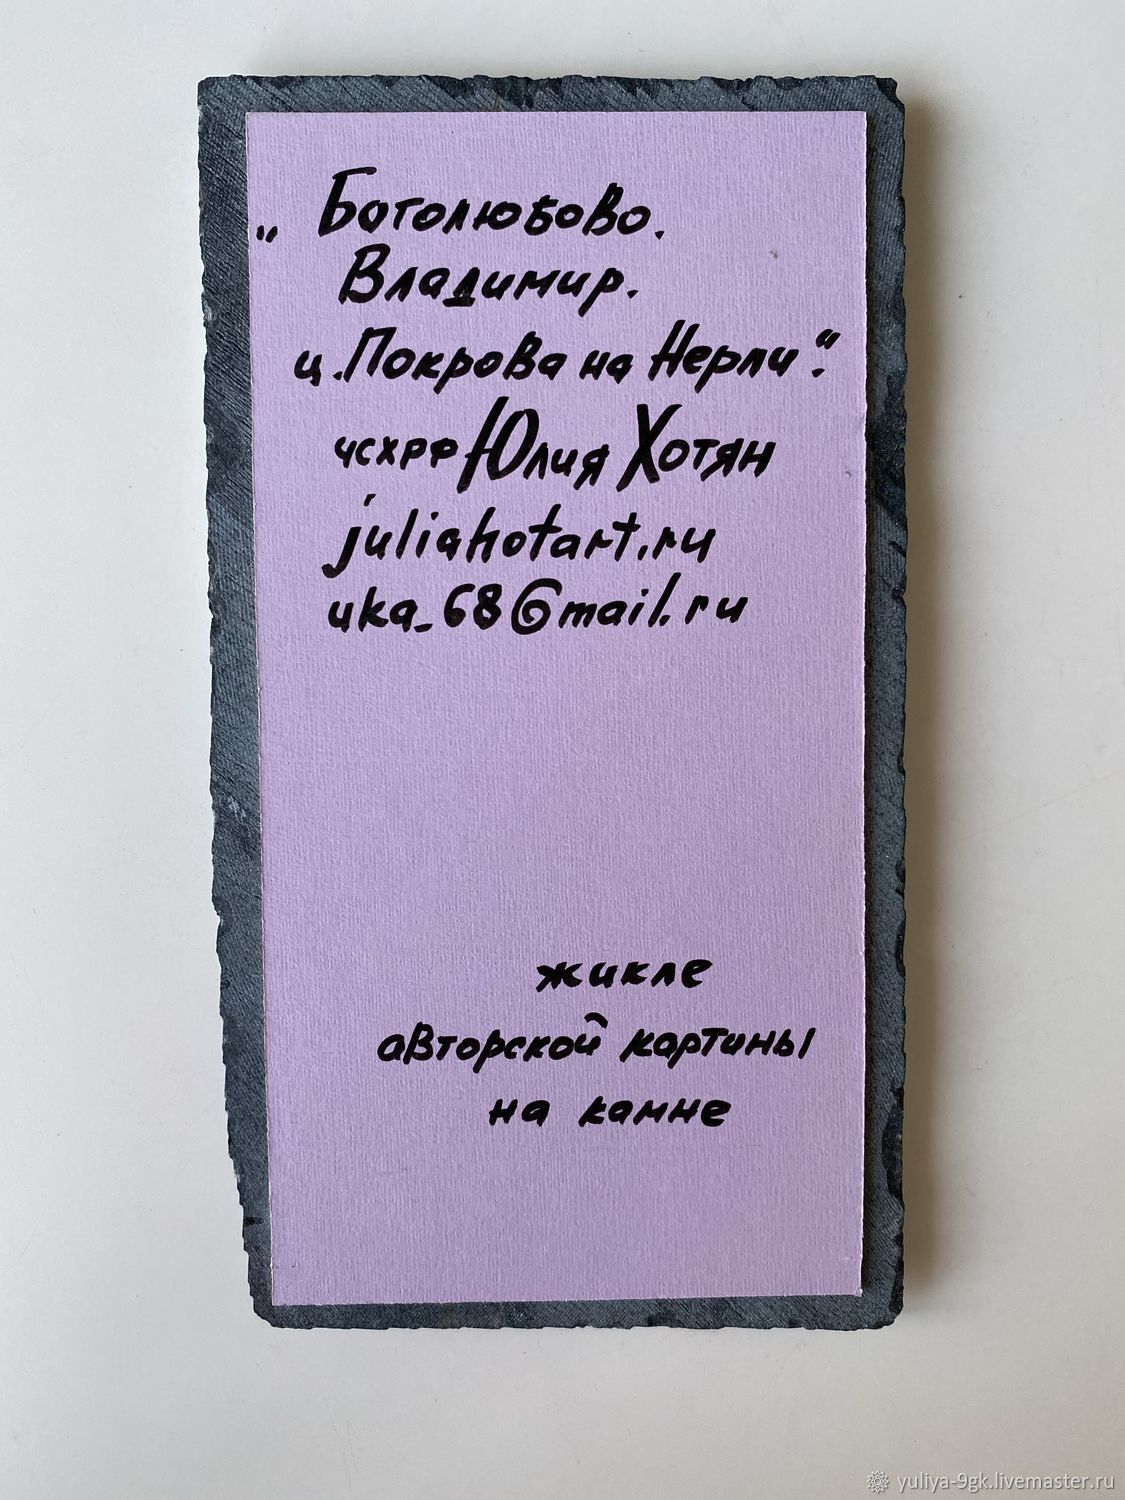 „Боголюбово.
Владимир.
ц. Покрова на Нерли“.
чсхрф Юлия Хотян
juliahotart.ru
uka_68@mail.ru
жикле
авторской картины
на камне
yuliya-9gk.livemaster.ru